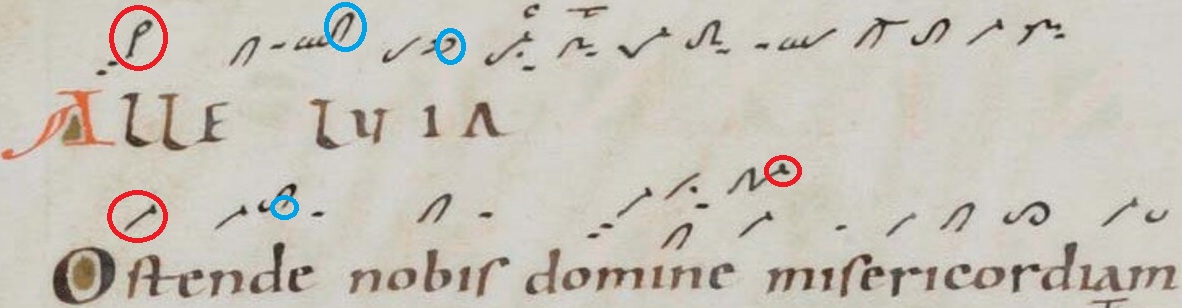 ALLE LUIA
Oſtende nobiſ domine miſericordiam